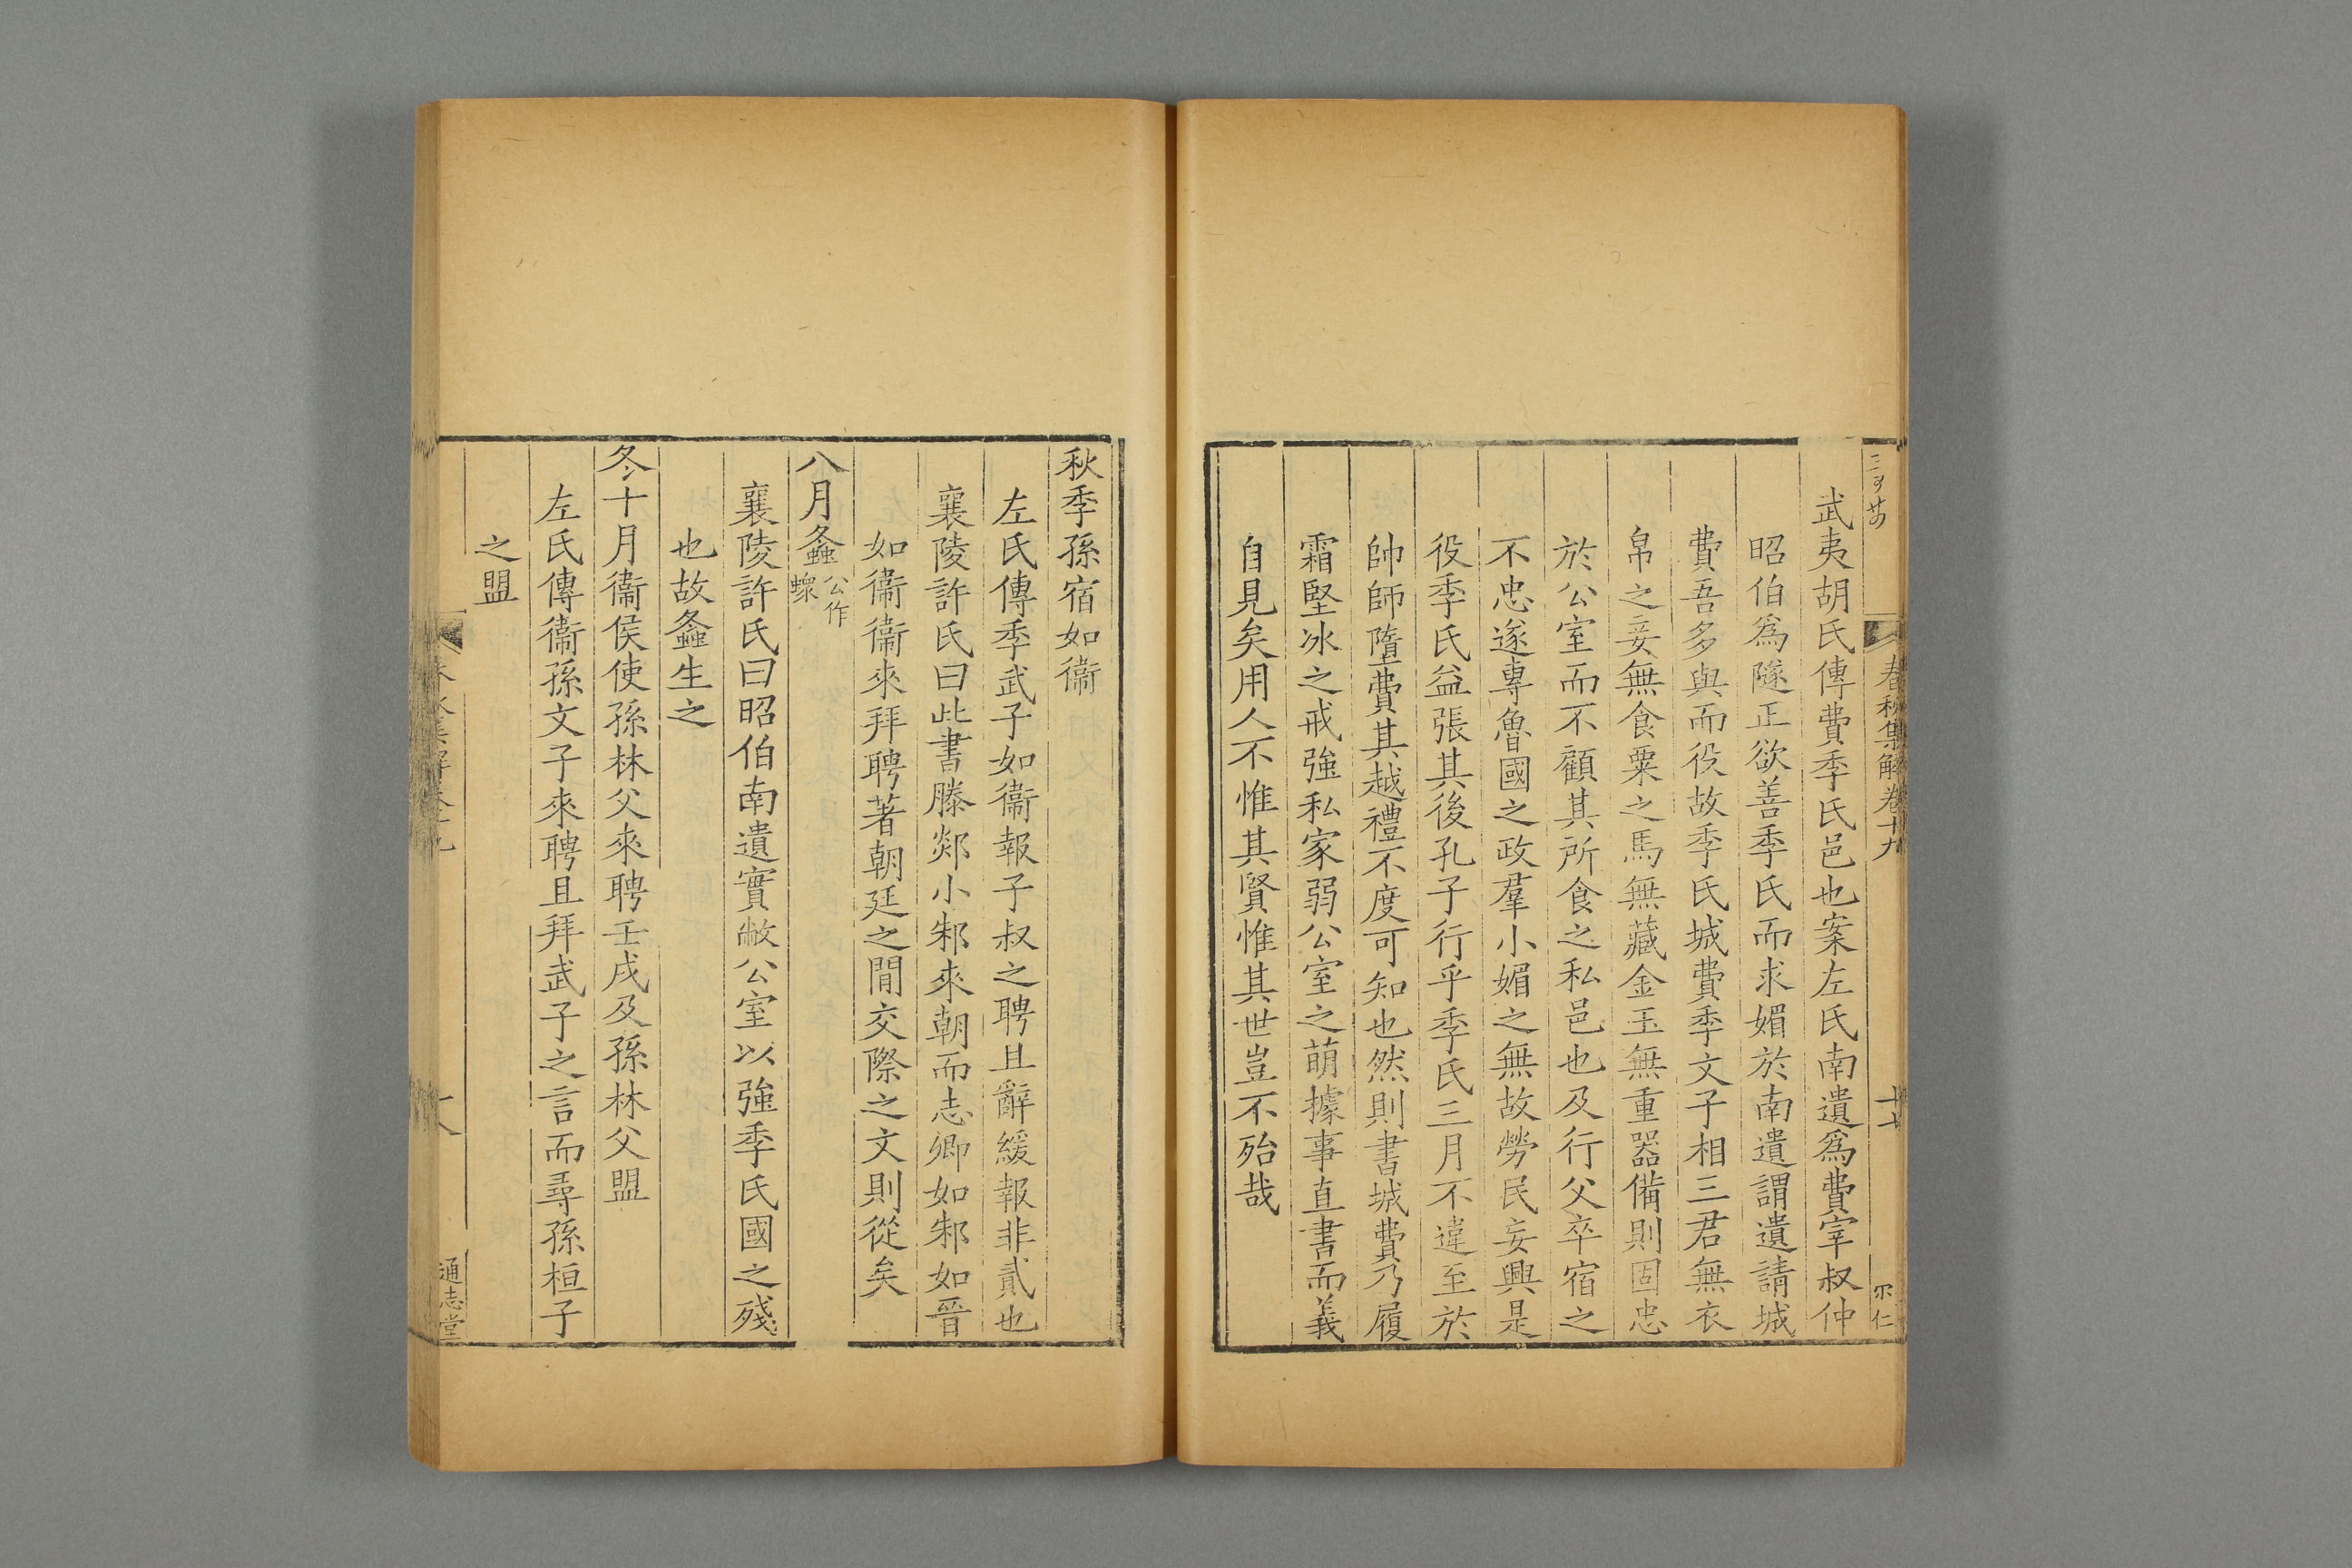 春秋集解卷十九
十七
武夷胡氏傳費季氏邑也案左氏南遺爲費宰叔仲
昭伯爲隧正欲善季氏而求媚於南遺謂遺請城
費吾多與而役故季氏城費季文子相三君無衣
帛之妾無食粟之馬無藏金玉無重器備則固忠
於公室而不顧其所食之私邑也及行父卒宿之
不忠遂專魯國之政羣小媚之無故勞民妄興是
役季氏益張其後孔子行乎季氏三月不違至於
帥師隳費其越禮不度可知也然則書城費乃履
霜堅冰之戒強私家弱公室之萌據事直書而義
自見矣用人不惟其賢惟其世豈不殆哉
秋季孫宿如衞
左氏傳季武子如衞報子叔之聘且辭緩報非貳也
襄陵許氏曰此書滕郯小邾來朝而志卿如邾如晉
如衞衞來拜聘著朝廷之閒交際之文則從矣
八月螽公作蝝
襄陵許氏曰昭伯南遺實敝公室以強季氏國之殘
也故螽生之
冬十月衞侯使孫林父來聘壬戌及孫林父盟
左氏傳衞孫文子來聘且拜武子之言而尋孫桓子
之盟
通志堂